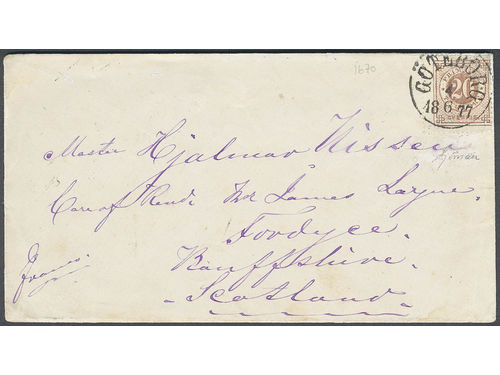 1670
GÖTEBORG
20
18 6 77
Master Hjalmar Nissen
Care of Revd Mr James Layne.
Fordyce.
Banffshire.
Scotland.
Franco.